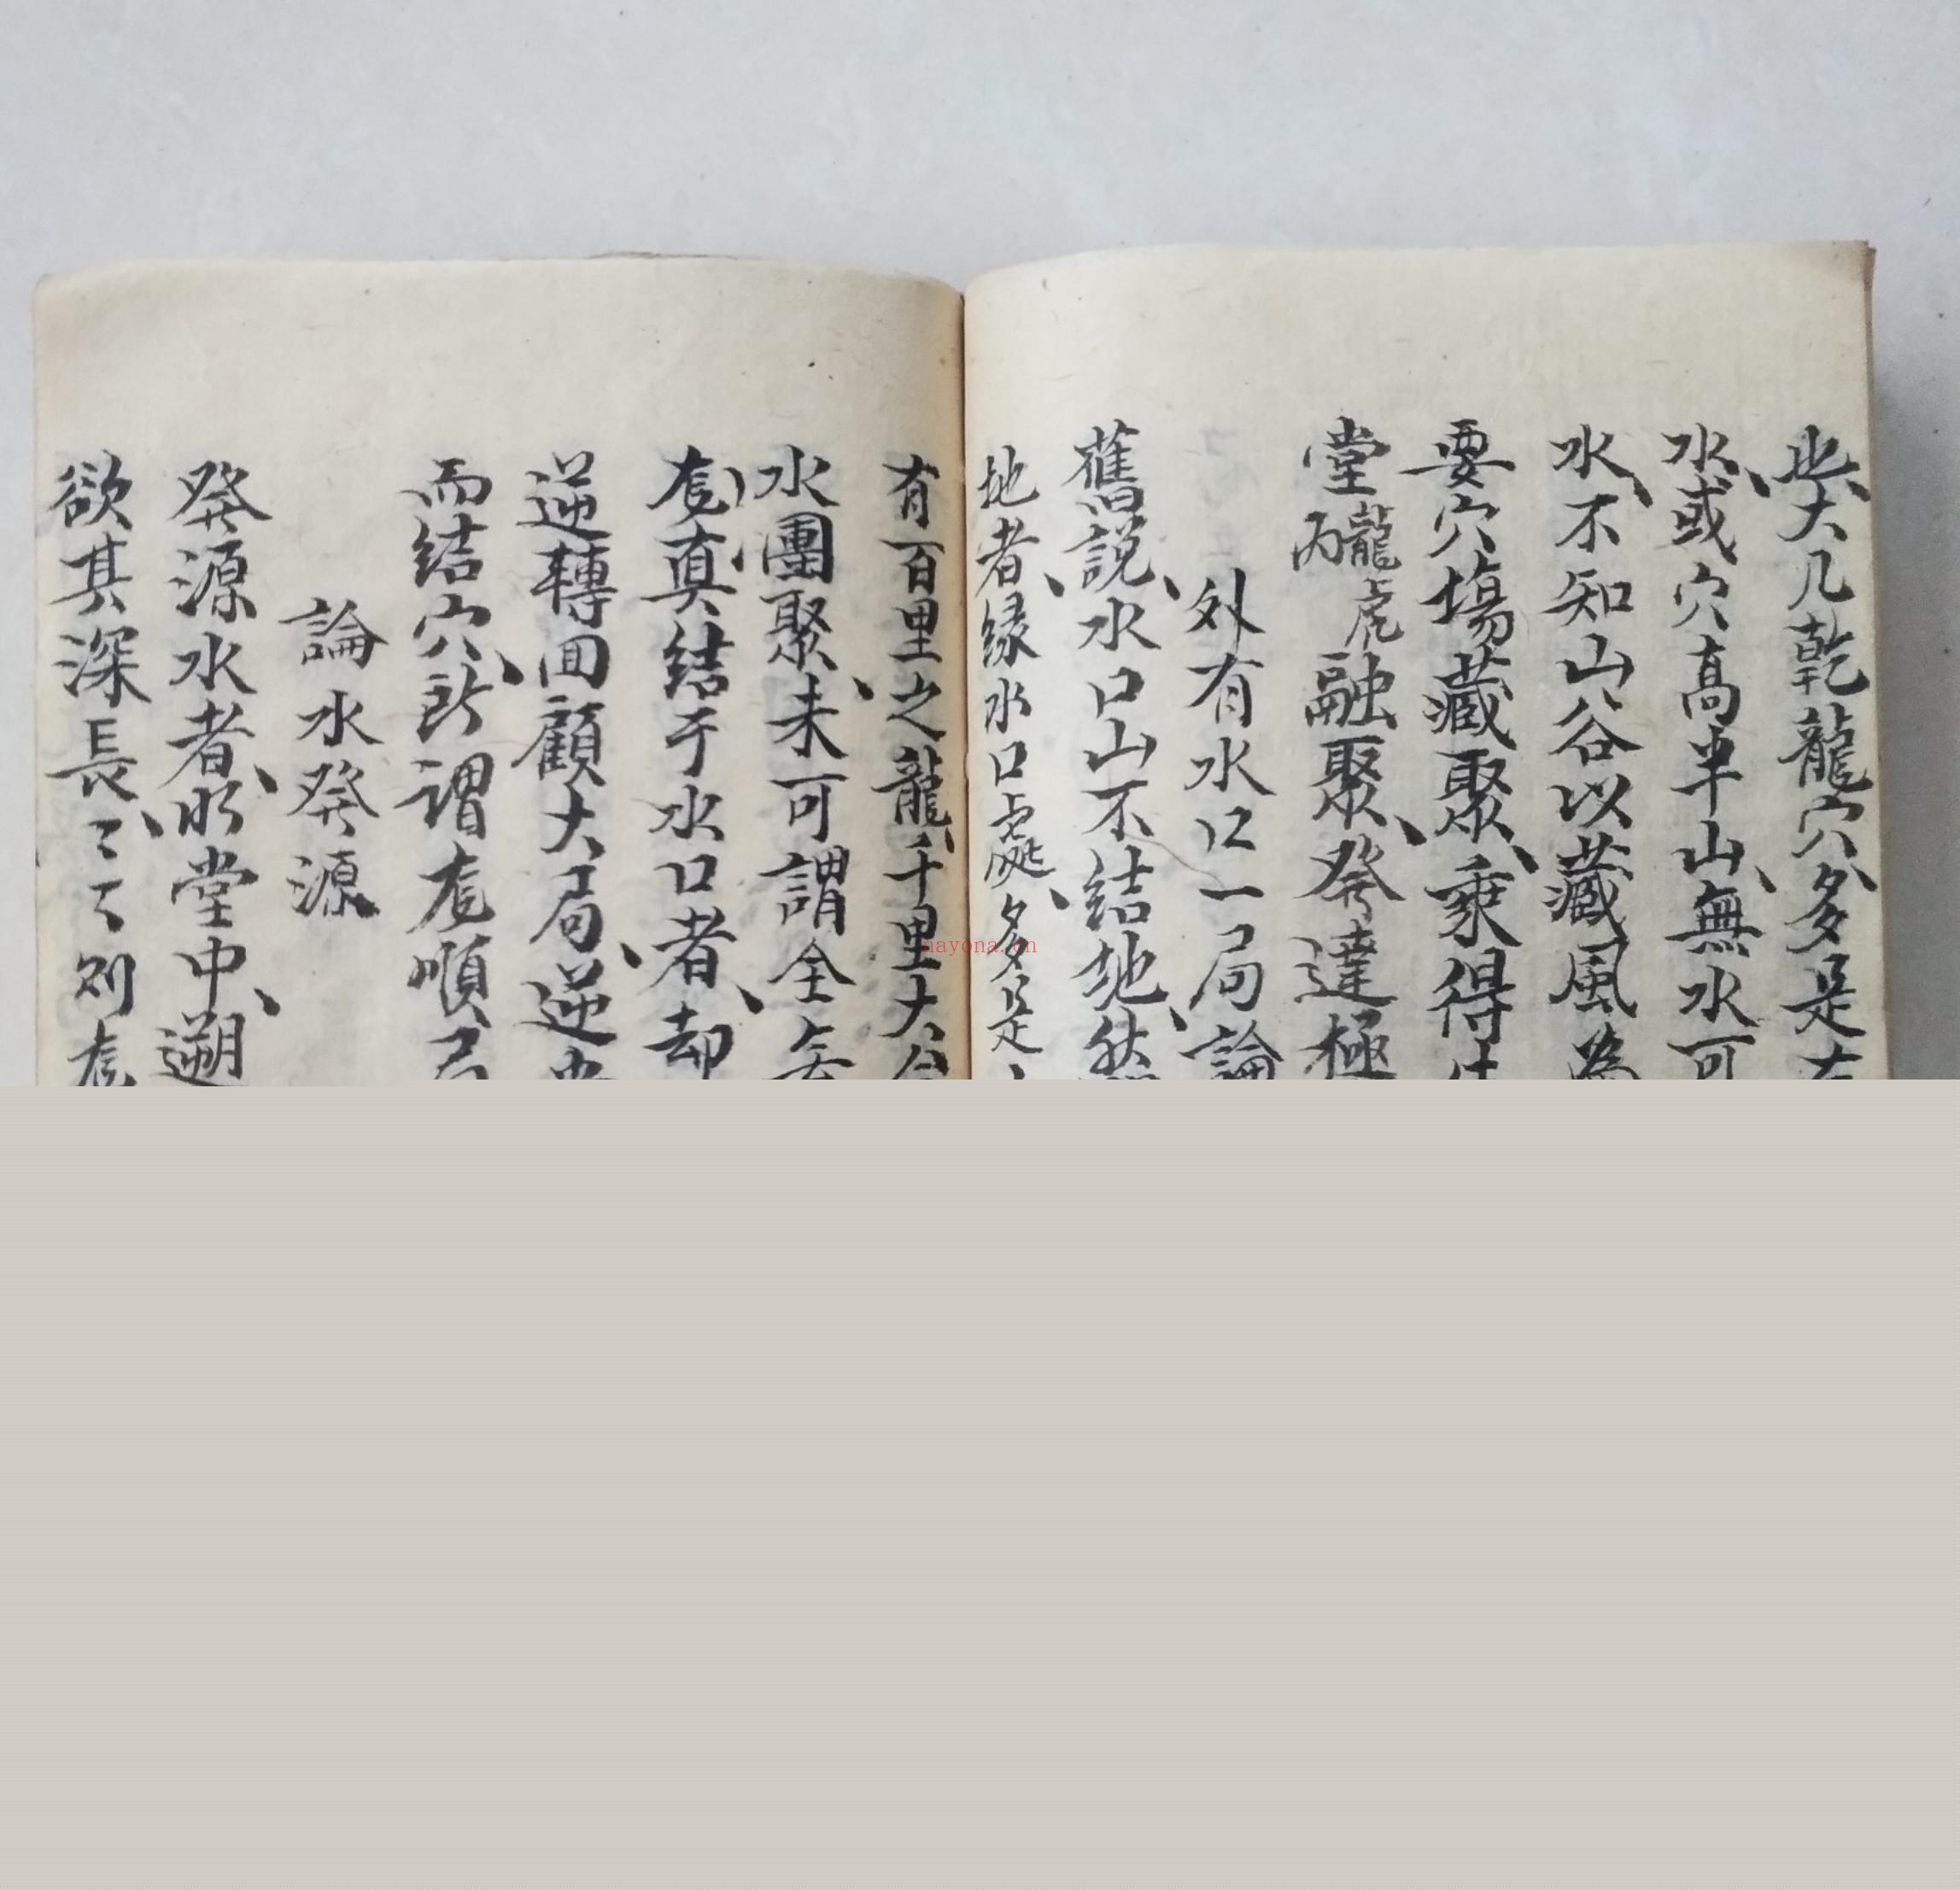 此大凡乾龍穴多是
水或穴高半山無水可
水不知山谷以藏風為
要穴場藏聚乘得
堂龍虎丙融聚發達極
外有水口一局論
舊說水口山不結地然
地者緣水口處多是
有百里之龍千里大
水團聚未可謂全無
真結于水口者却
逆轉回顧大局逆
而結穴所謂順
論水發源
發源水者明堂中遡
欲其深長〻〻則
nayona.cn